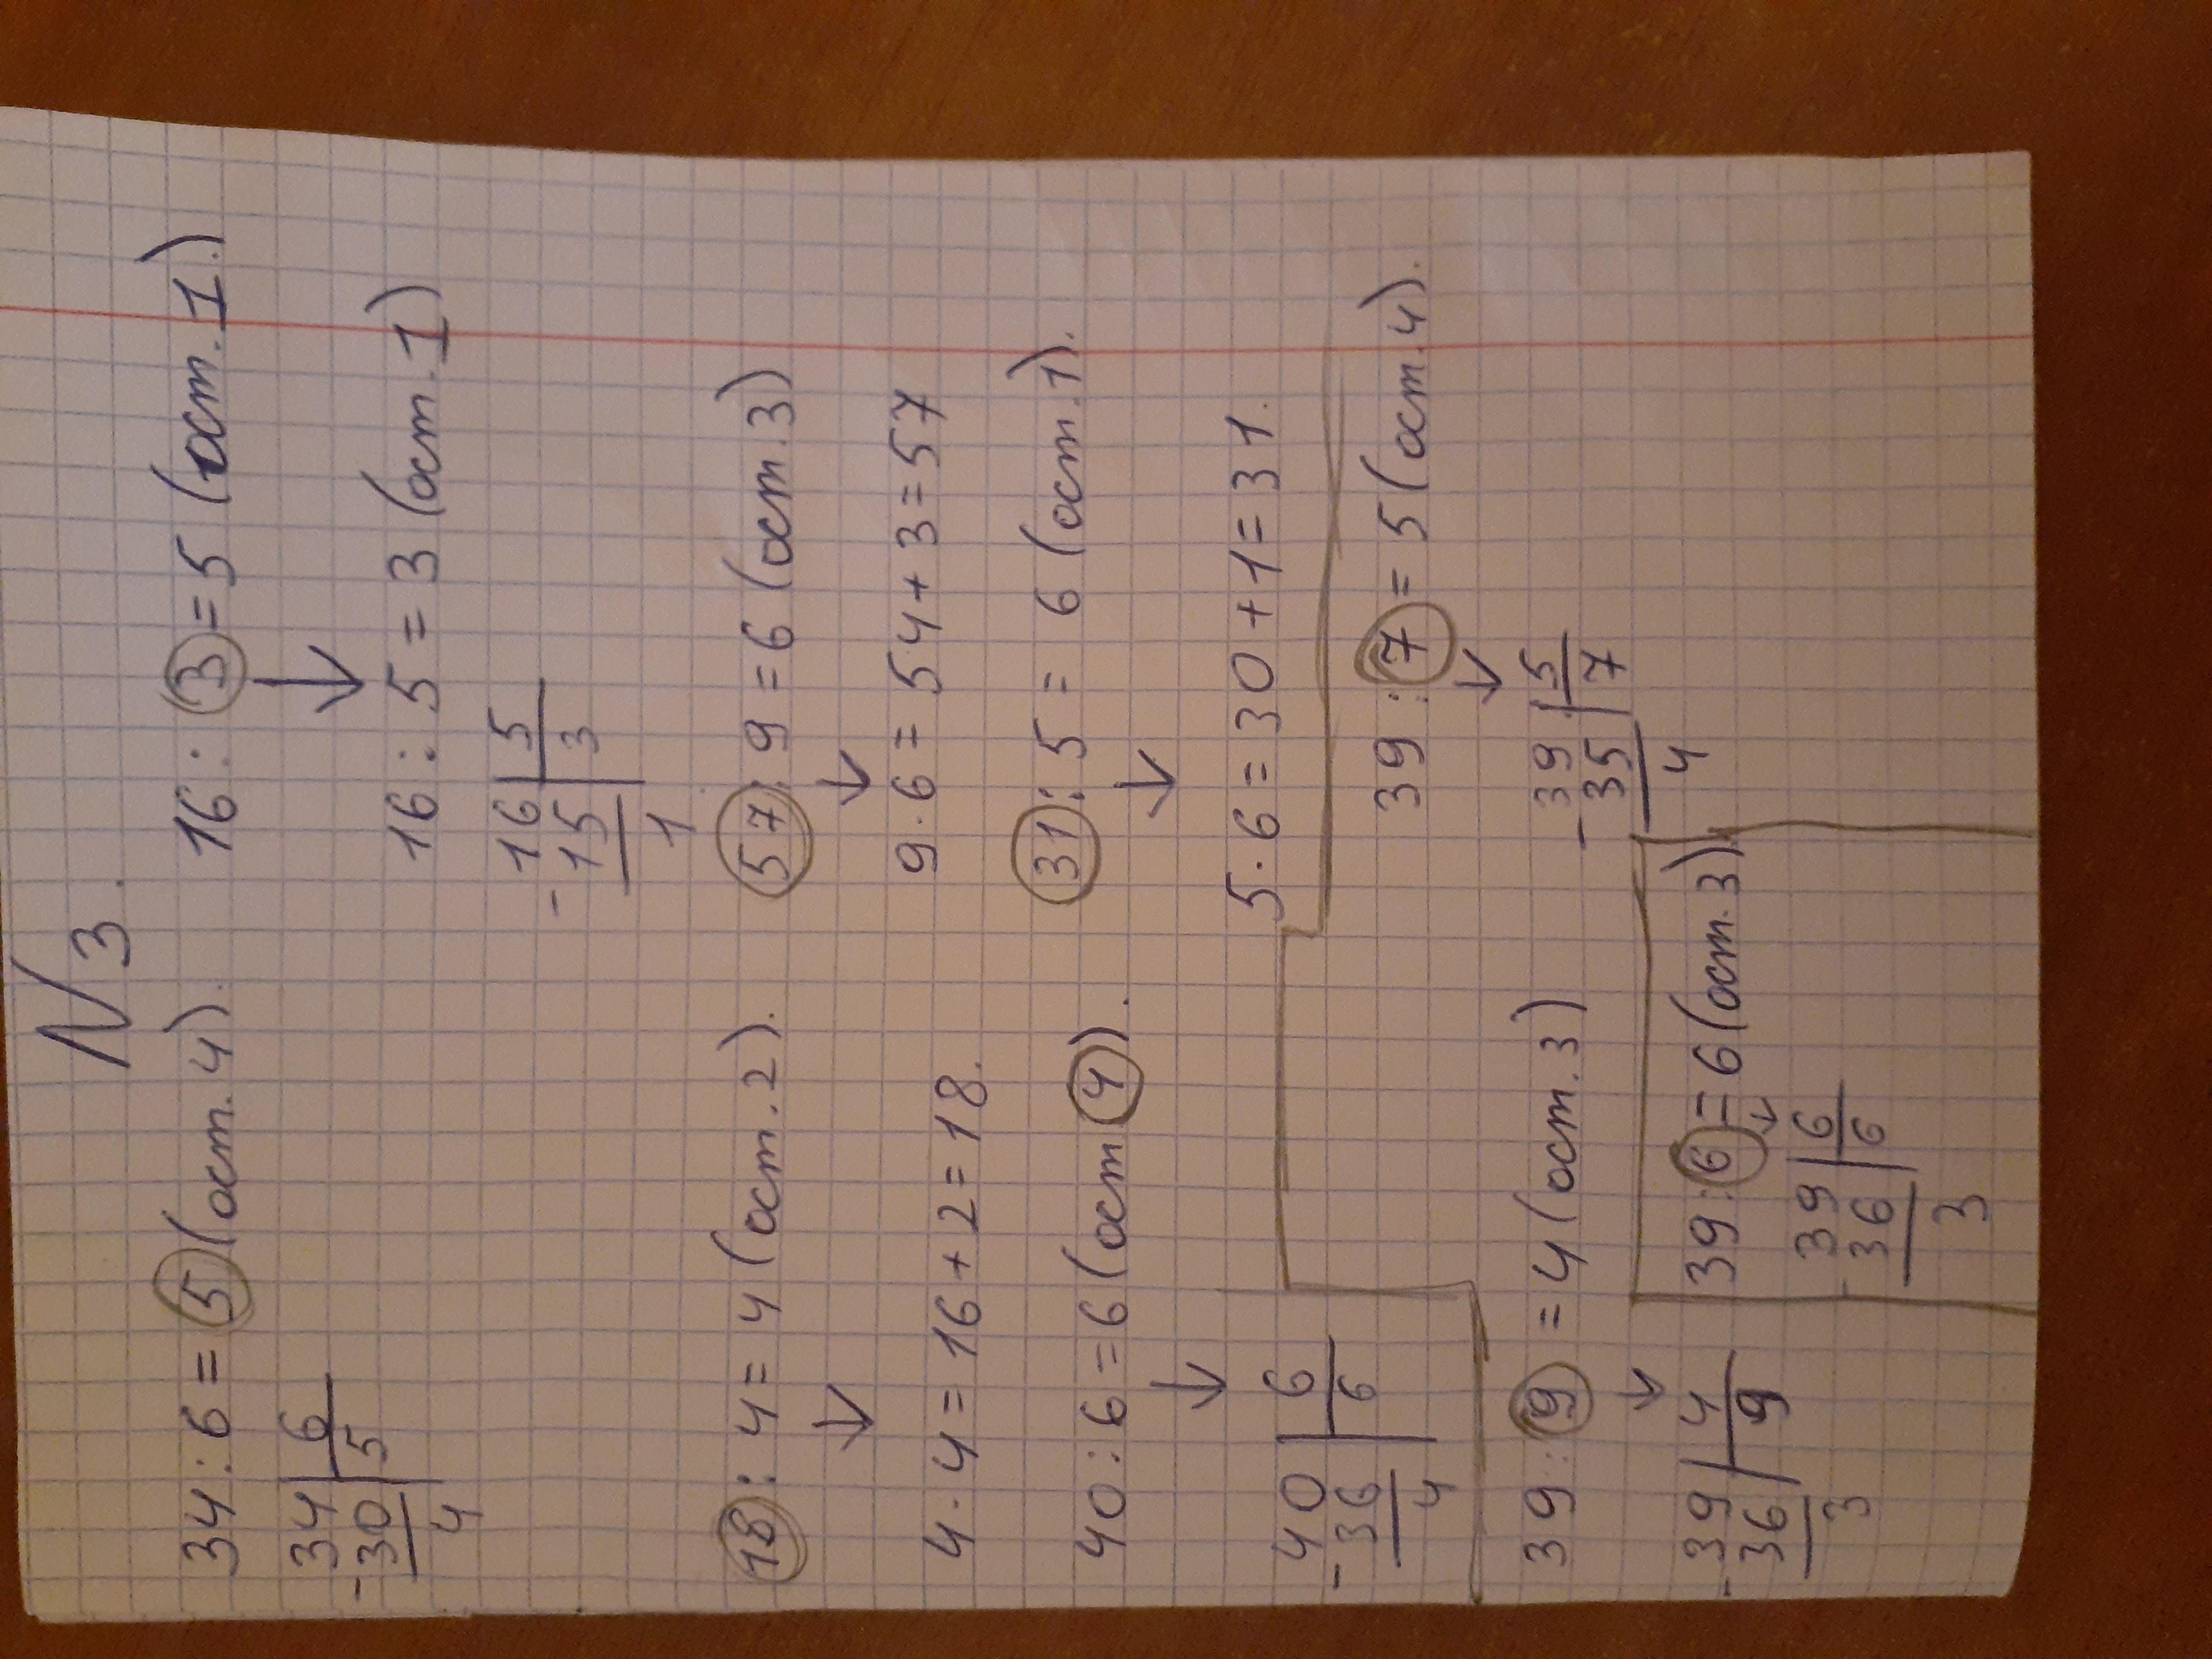 N 3.
34 : 6 = 5 (ост. 4).
34 | 6
-30 | 5
4
16 : 3 = 5 (ост. 1.)
16 : 5 = 3 (ост. 1)
16 | 5
-15 | 3
1
18 : 4 = 4 (ост. 2).
4 · 4 = 16 + 2 = 18.
57 : 9 = 6 (ост. 3)
9 · 6 = 54 + 3 = 57
40 : 6 = 6 (ост 4).
40 | 6
-36 | 6
4
31 : 5 = 6 (ост. 1).
5 · 6 = 30 + 1 = 31.
39 : 9 = 4 (ост. 3)
-39 | 4
36 | 9
3
39 : 7 = 5 (ост. 4).
-39 | 5
35 | 7
4
39 : 6 = 6 (ост. 3).
39 | 6
-36 | 6
3